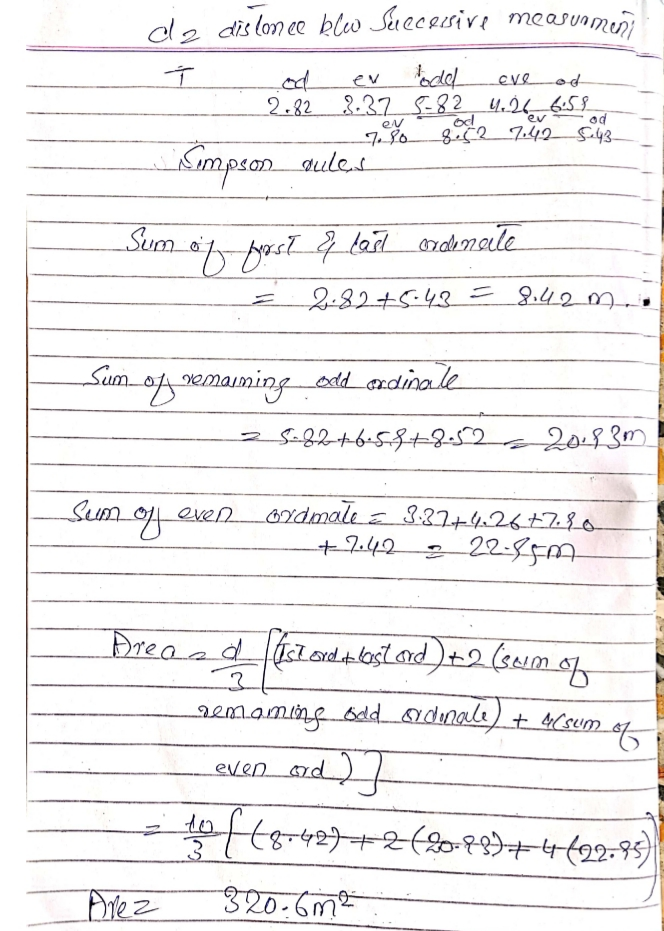 d = distance b/w Successive measurment
T od ev odd eve od
2.82 3.37 5.82 4.26 6.59
ev od ev od
7.90 8.52 7.42 5.43
Simpson rules
Sum of first & last ordinate
= 2.82 + 5.43 = 8.42 m.
Sum of remaining odd ordinate
= 5.82 + 6.59 + 8.52 = 20.93m
Sum of even ordinate = 3.37 + 4.26 + 7.90
+ 7.42 = 22.95m
Area = d/3 [(Ist ord + last ord) + 2 (sum of
remaining odd ordinate) + 4(sum of
even ord)]
= 10/3 [(8.42) + 2 (20.93) + 4 (22.95)]
Area = 320.6m²